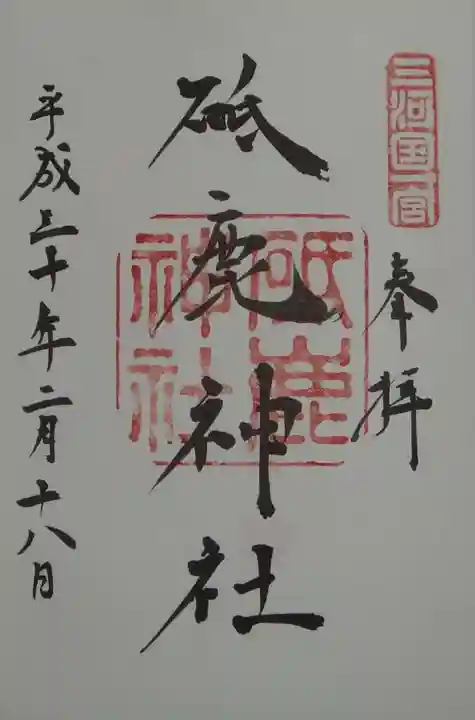 三河国一宮
奉拝
砥鹿神社
砥鹿神社
平成三十年二月十八日